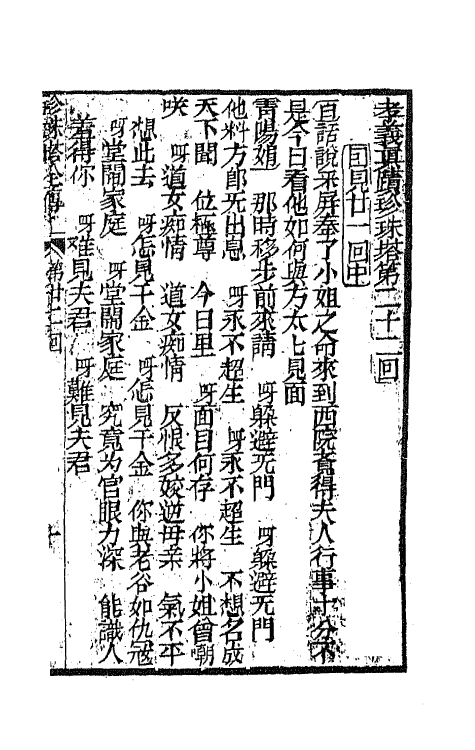 孝義真蹟珍珠塔第二十二回
回見廿一回中
百話說采屏奉了小姐之命來到西院斎得夫人行事十分不
是今日看他如何與方太七見面
青陽娟 那時移步前來請 呀躲避无門 呀躲避无門
他料方郎死出息 呀永不超生 呀永不超生 不想名成
天下聞 位極尊 今日里 呀面目何存 你將小姐曾嘲
咲 呀道女痴情 道女痴情 反恨多嫁逆母亲 氣不平
想此去 呀怎見千金 呀怎見千金 你與老谷如仇冦
呀堂閙家庭 呀堂閙家庭 究竟为官眼力深 能識人
羞得你 呀难見夫君 呀難見夫君
珍珠塔全傳 第廿二回 一